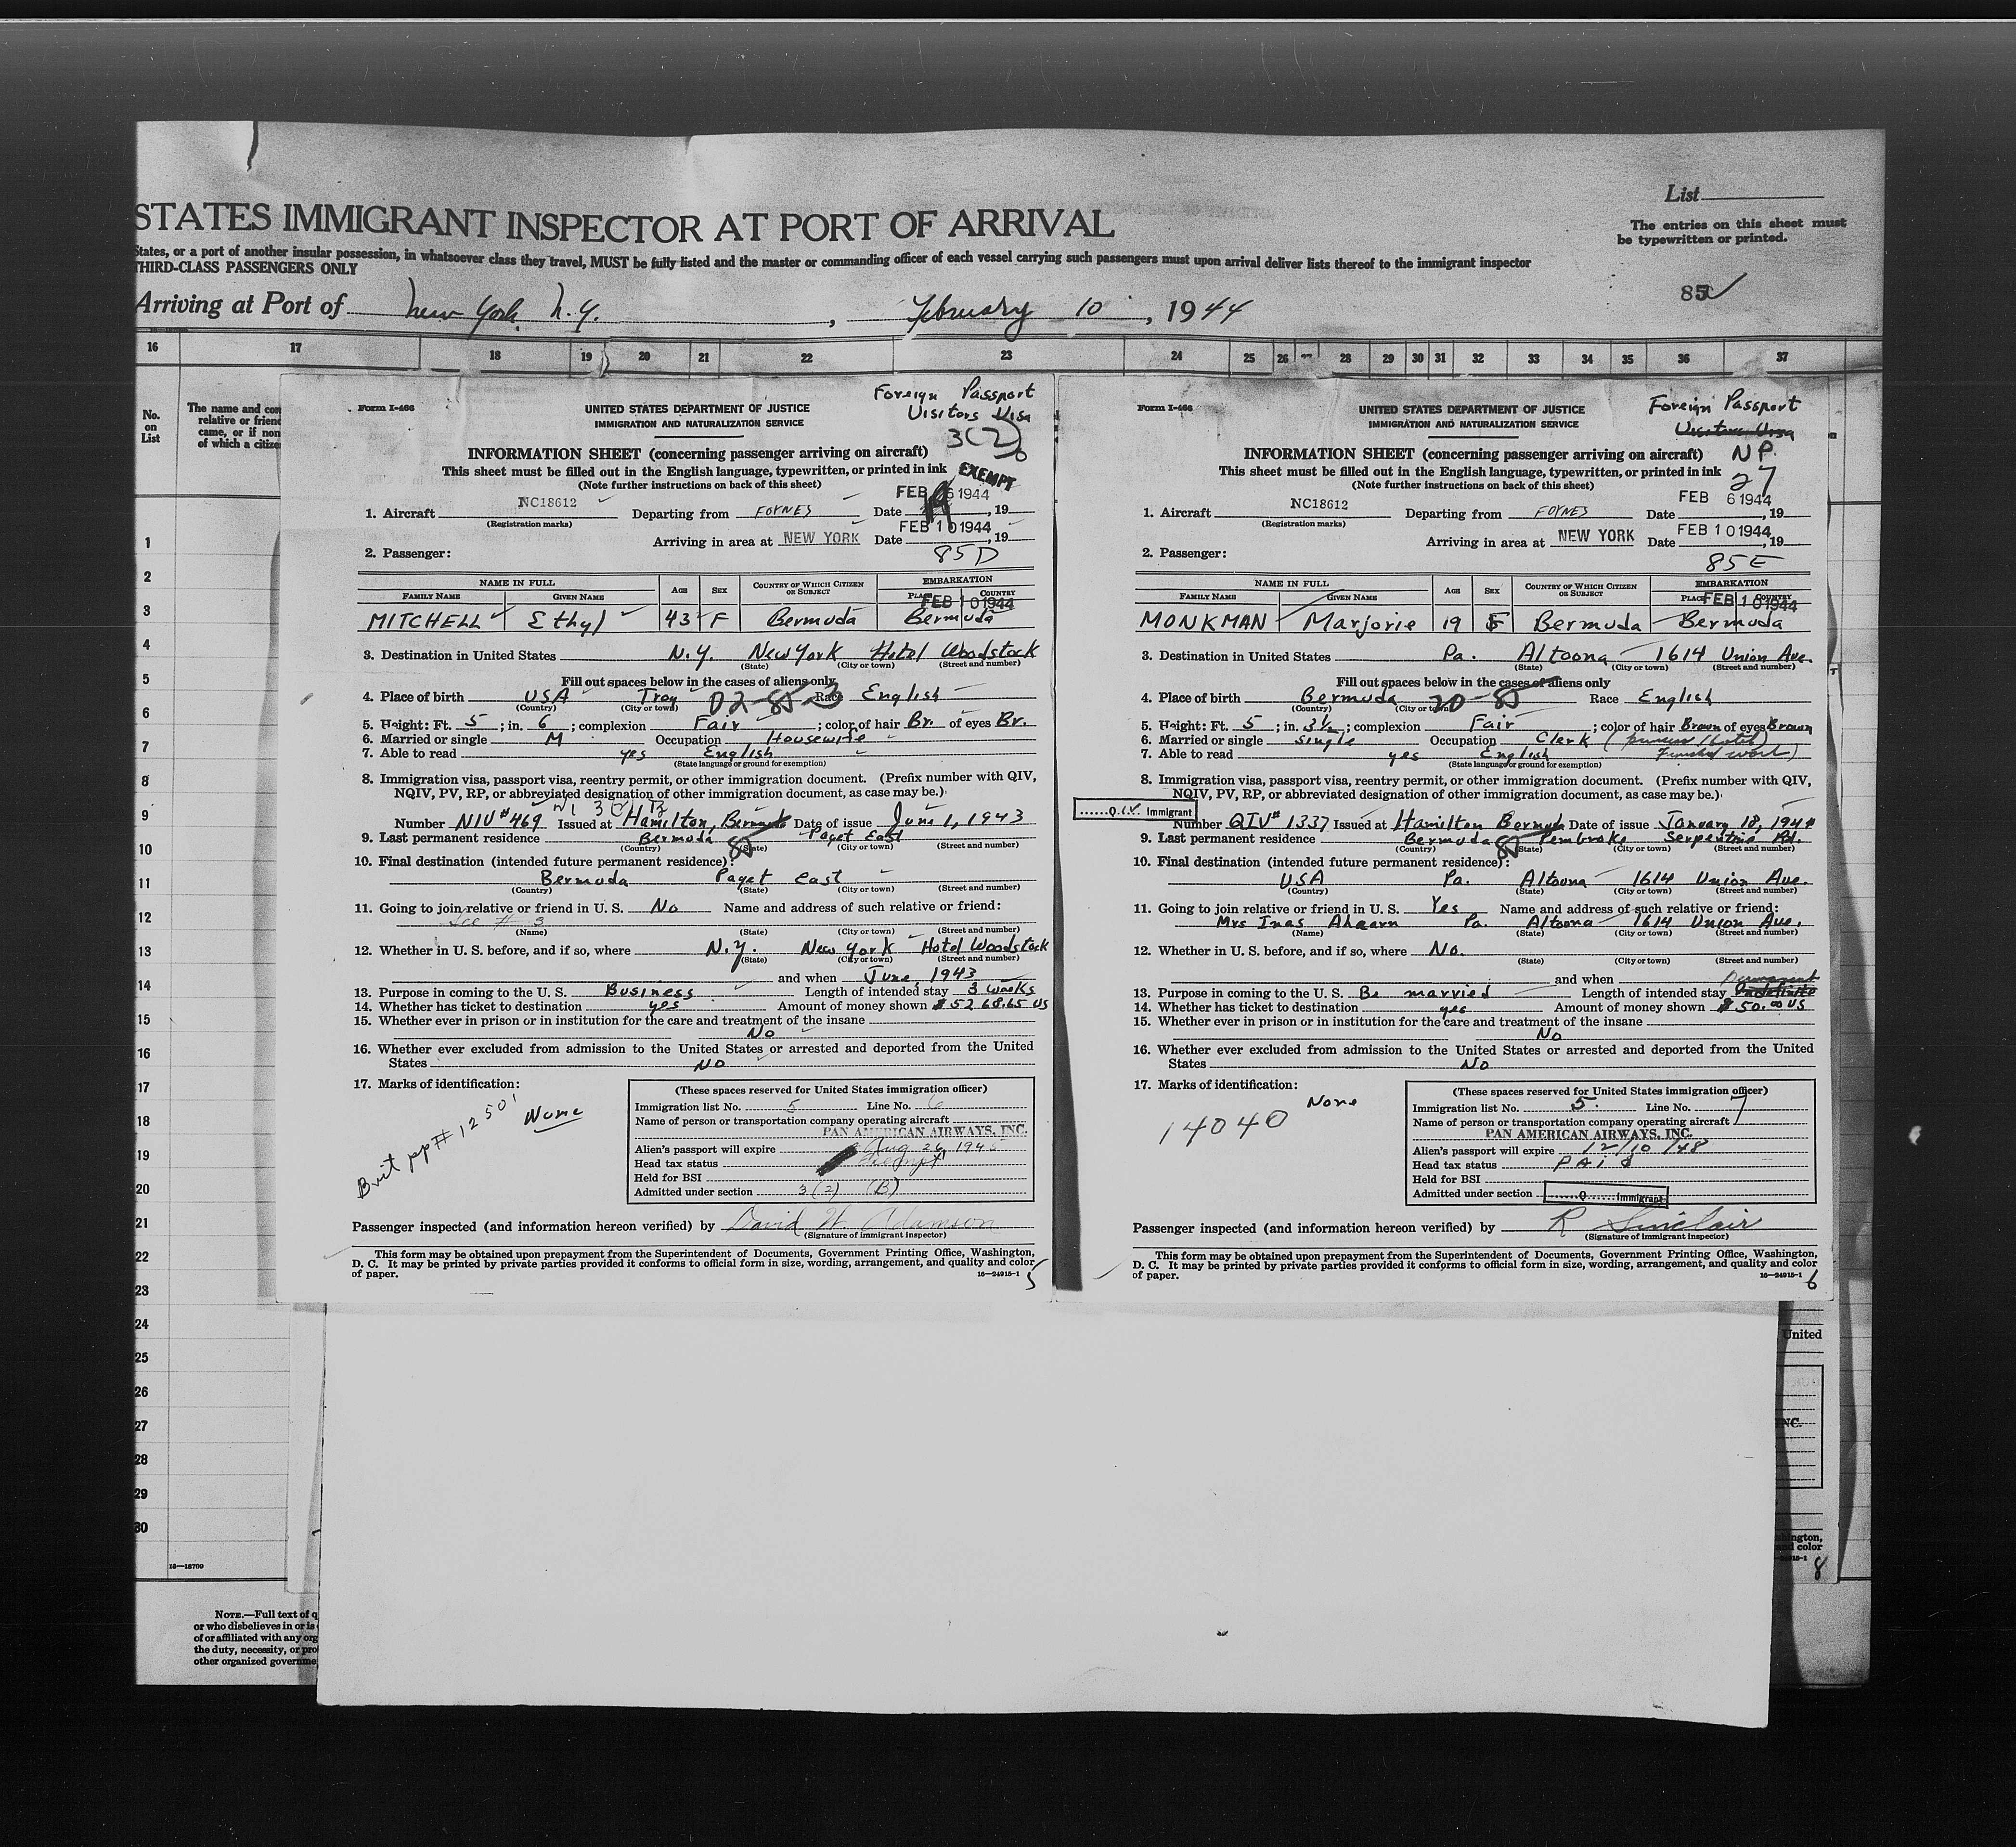 List
STATES IMMIGRANT INSPECTOR AT PORT OF ARRIVAL
The entries on this sheet must
be typewritten or printed.
States, or a port of another insular possession, in whatsoever class they travel, MUST be fully listed and the master or commanding officer of each vessel carrying such passengers must upon arrival deliver lists thereof to the immigrant inspector
THIRD-CLASS PASSENGERS ONLY
85
Arriving at Port of New York, N.Y., February 10, 1944
16 17 18 19 20 21 22 23 24 25 26 28 29 30 31 32 33 34 35 36 37
No.
on
List
The name and com
relative or friend
came, or if non
of which a citize
1
2
3
4
5
6
7
8
9
10
11
12
13
14
15
16
17
18
19
20
21
22
23
24
25
26
27
28
29
30
16—18709
NOTE.—Full text of q
or who disbelieves in or is
of or affiliated with any org
the duty, necessity, or pro
other organized governme
Form I-466
Foreign Passport
Visitors Visa
3(2)
UNITED STATES DEPARTMENT OF JUSTICE
IMMIGRATION AND NATURALIZATION SERVICE
INFORMATION SHEET (concerning passenger arriving on aircraft)
This sheet must be filled out in the English language, typewritten, or printed in ink
EXEMPT
(Note further instructions on back of this sheet)
FEB 6 1944
1. Aircraft NC18612 Departing from FOYNES Date , 19
(Registration marks)
FEB 10 1944
Arriving in area at NEW YORK Date , 19
2. Passenger: 85D
NAME IN FULL AGE SEX COUNTRY OF WHICH CITIZEN OR SUBJECT EMBARKATION
FAMILY NAME GIVEN NAME PLACE COUNTRY
FEB 10 1944
MITCHELL Ethyl 43 F Bermuda Bermuda
3. Destination in United States N.Y. New York Hotel Woodstock
(State) (City or town) (Street and number)
Fill out spaces below in the cases of aliens only
4. Place of birth USA Troy 02-85-3 Race English
(Country) (City or town)
5. Height: Ft. 5; in. 6; complexion Fair; color of hair Br. of eyes Br.
6. Married or single M Occupation Housewife
7. Able to read yes English
(State language or ground for exemption)
8. Immigration visa, passport visa, reentry permit, or other immigration document. (Prefix number with QIV,
NQIV, PV, RP, or abbreviated designation of other immigration document, as case may be.)
Number NIV #469 Issued at Hamilton, Bermuda Date of issue June 1, 1943
9. Last permanent residence Bermuda Paget East
(Country) (State) (City or town) (Street and number)
10. Final destination (intended future permanent residence):
Bermuda Paget East
(Country) (State) (City or town) (Street and number)
11. Going to join relative or friend in U. S. No Name and address of such relative or friend:
See # 3
(Name) (State) (City or town) (Street and number)
12. Whether in U. S. before, and if so, where N.Y. New York Hotel Woodstock
(State) (City or town) (Street and number)
and when June, 1943
13. Purpose in coming to the U. S. Business Length of intended stay 3 weeks
14. Whether has ticket to destination yes Amount of money shown $5268.65 US
15. Whether ever in prison or in institution for the care and treatment of the insane
No
16. Whether ever excluded from admission to the United States or arrested and deported from the United
States No
17. Marks of identification:
None
Brit pp# 12501
(These spaces reserved for United States immigration officer)
Immigration list No. 5 Line No. 6
Name of person or transportation company operating aircraft
PAN AMERICAN AIRWAYS, INC.
Alien's passport will expire Aug 26, 1945
Head tax status Exempt
Held for BSI
Admitted under section 3(2) (B)
Passenger inspected (and information hereon verified) by David W. Adamson
(Signature of immigrant inspector)
This form may be obtained upon prepayment from the Superintendent of Documents, Government Printing Office, Washington,
D. C. It may be printed by private parties provided it conforms to official form in size, wording, arrangement, and quality and color
of paper. 16—24915-1 5
Form I-466
Foreign Passport
Visitors Visa
NP
27
UNITED STATES DEPARTMENT OF JUSTICE
IMMIGRATION AND NATURALIZATION SERVICE
INFORMATION SHEET (concerning passenger arriving on aircraft)
This sheet must be filled out in the English language, typewritten, or printed in ink
(Note further instructions on back of this sheet)
FEB 6 1944
1. Aircraft NC18612 Departing from FOYNES Date , 19
(Registration marks)
FEB 10 1944
Arriving in area at NEW YORK Date , 19
2. Passenger: 85E
NAME IN FULL AGE SEX COUNTRY OF WHICH CITIZEN OR SUBJECT EMBARKATION
FAMILY NAME GIVEN NAME PLACE COUNTRY
FEB 10 1944
MONKMAN Marjorie 19 F Bermuda Bermuda
3. Destination in United States Pa. Altoona 1614 Union Ave.
(State) (City or town) (Street and number)
Fill out spaces below in the cases of aliens only
4. Place of birth Bermuda 20-85 Race English
(Country) (City or town)
5. Height: Ft. 5; in. 3½; complexion Fair; color of hair Brown of eyes Brown
6. Married or single single Occupation Clerk
7. Able to read yes English
(State language or ground for exemption)
8. Immigration visa, passport visa, reentry permit, or other immigration document. (Prefix number with QIV,
NQIV, PV, RP, or abbreviated designation of other immigration document, as case may be.)
Q.I.V. Immigrant
Number QIV# 1337 Issued at Hamilton Bermuda Date of issue January 18, 1944
9. Last permanent residence Bermuda Pembroke Serpentine Rd.
(Country) (State) (City or town) (Street and number)
10. Final destination (intended future permanent residence):
USA Pa. Altoona 1614 Union Ave.
(Country) (State) (City or town) (Street and number)
11. Going to join relative or friend in U. S. Yes Name and address of such relative or friend:
Mrs Inas Ahearn Pa. Altoona 1614 Union Ave.
(Name) (State) (City or town) (Street and number)
12. Whether in U. S. before, and if so, where No.
(State) (City or town) (Street and number)
and when
Permanent
13. Purpose in coming to the U. S. Be married Length of intended stay Indefinite
14. Whether has ticket to destination yes Amount of money shown $50.00 US
15. Whether ever in prison or in institution for the care and treatment of the insane
No
16. Whether ever excluded from admission to the United States or arrested and deported from the United
States No
17. Marks of identification:
None
14040
(These spaces reserved for United States immigration officer)
Immigration list No. 5. Line No. 7
Name of person or transportation company operating aircraft
PAN AMERICAN AIRWAYS, INC.
Alien's passport will expire 12/10/48
Head tax status PAID
Held for BSI
Admitted under section Q Immigrant
Passenger inspected (and information hereon verified) by R Sinclair
(Signature of immigrant inspector)
This form may be obtained upon prepayment from the Superintendent of Documents, Government Printing Office, Washington,
D. C. It may be printed by private parties provided it conforms to official form in size, wording, arrangement, and quality and color
of paper. 16—24915-1 6
United
INC.
hington,
and color
8